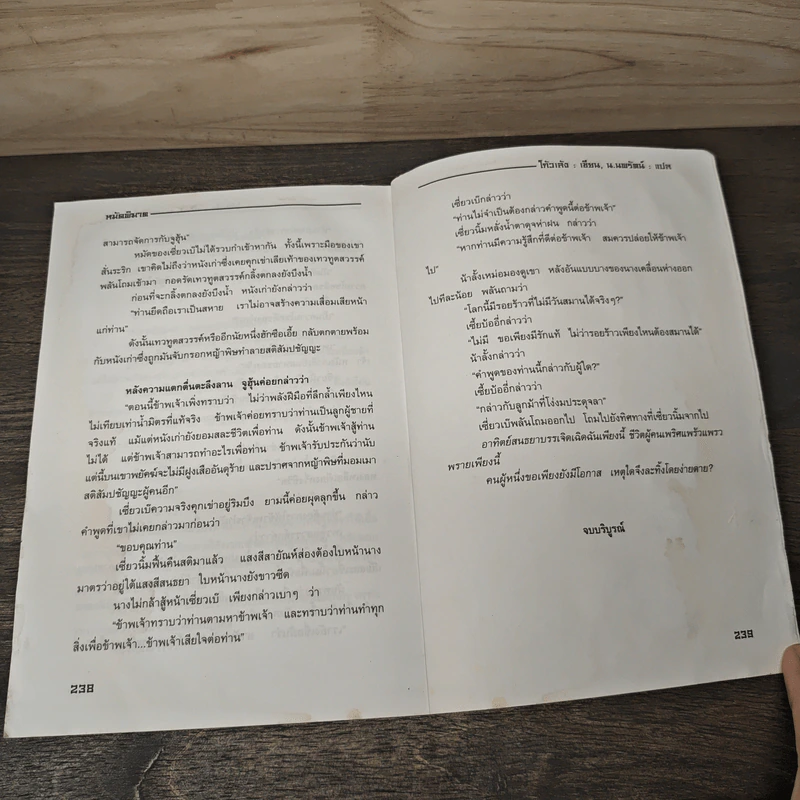 หมันพิมาต
สามารถจัดการกับจูฮุ้น"
หมัดของเซี่ยวเบ๊ไม่ได้รวบกำเข้าหากัน ทั้งนี้เพราะมือของเขา
สั่นระริก เขาคิดไม่ถึงว่าหนังเก่งซึ่งเคยคุกเข่าเลียเท้าของเทวทูตสวรรค์
พลันโถมเข้ามา กอดรัดเทวทูตสวรรค์กลิ้งตกลงยังบึงน้ำ
ก่อนที่จะกลิ้งตกลงยังบึงน้ำ หนังเก่งยังกล่าวว่า
"ท่านยึดถือเราเป็นสหาย เราไม่อาจสร้างความเสื่อมเสียหน้า
แก่ท่าน"
ดังนั้นเทวทูตสวรรค์หรืออีกนัยหนึ่งฮักซือเอี้ย กลับตกตายพร้อม
กับหนังเก่งซึ่งถูกมันจับกรอกหญ้าพิษทำลายสติสัมปชัญญะ
หลังความแตกตื่นตะลึงลาน จูฮุ้นค่อยกล่าวว่า
"ตอนนี้ข้าพเจ้าเพิ่งทราบว่า ไม่ว่าพลังฝีมือที่ลึกล้ำเพียงไหน
ไม่เทียบเท่าน้ำมิตรที่แท้จริง ข้าพเจ้าค่อยทราบว่าท่านเป็นลูกผู้ชายที่
จริงแท้ แม้แต่หนังเก่งยังยอมสละชีวิตเพื่อท่าน ดังนั้นข้าพเจ้าสู้ท่าน
ไม่ได้ แต่ข้าพเจ้าสามารถทำอะไรเพื่อท่าน ข้าพเจ้ารับประกันว่านับ
แต่นี้บนเขาพยัคฆ์จะไม่มีฝูงเสืออันดุร้าย และปราศจากหญ้าพิษที่มอมเมา
สติสัมปชัญญะผู้คนอีก"
เซี่ยวเบ๊ความจริงคุกเข่าอยู่ริมบึง ยามนี้ค่อยผุดลุกขึ้น กล่าว
คำพูดที่เขาไม่เคยกล่าวมาก่อนว่า
"ขอบคุณท่าน"
เซี่ยวนิ้มฟื้นคืนสติมาแล้ว แสงสีสายัณห์ส่องต้องใบหน้านาง
มาตรว่าอยู่ใต้แสงสีสนธยา ใบหน้านางยังขาวซีด
นางไม่กล้าสู้หน้าเซี่ยวเบ๊ เพียงกล่าวเบาๆ ว่า
"ข้าพเจ้าทราบว่าท่านตามมหาข้าพเจ้า และทราบว่าท่านทำทุก
สิ่งเพื่อข้าพเจ้า...ข้าพเจ้าเสียใจต่อท่าน"
238
โก้วเล้ง : เขียน, น.นพรัตน์ : แปล
เซี่ยวเบ๊กล่าวว่า
"ท่านไม่จำเป็นต้องกล่าวคำพูดนี้ต่อข้าพเจ้า"
เซี่ยวนิ้มหลั่งน้ำตาดุจห่าฝน กล่าวว่า
"หากท่านมีความรู้สึกที่ดีต่อข้าพเจ้า สมควรปล่อยให้ข้าพเจ้า
ไป"
น้าลั้งเหม่อมองดูเขา หลังอันแบบบางของนางเคลื่อนห่างออก
ไปทีละน้อย พลันถามว่า
"โลกนี้มีรอยร้าวที่ไม่มีวันสมานได้จริงๆ?"
เซี้ยป้ออี้กล่าวว่า
"ไม่มี ขอเพียงมีรักแท้ ไม่ว่ารอยร้าวเพียงไหนต้องสมานได้"
น้าลั้งกล่าวว่า
"คำพูดของท่านนี้กล่าวกับผู้ใด?"
เซี้ยป้ออี้กล่าวว่า
"กล่าวกับลูกม้าที่โง่งมประดุจลา"
เซี่ยวเบ๊พลันโถมออกไป โถมไปยังทิศทางที่เซี่ยวนิ้มจากไป
อาทิตย์สนธยาบรรเจิดเฉิดฉันเพียงนี้ ชีวิตผู้คนเพริศแพร้วแพรว
พรายเพียงนี้
คนผู้หนึ่งขอเพียงยังมีโอกาส เหตุใดจึงละทิ้งโดยง่ายดาย?
จบบริบูรณ์
239